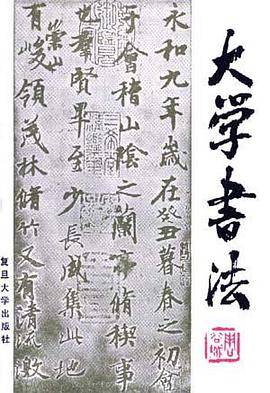 大学書法
周谷城
永和九年歲在癸丑暮春之初會
于會稽山陰之蘭亭脩稧事
也羣賢畢至少長咸集此地
有崇山峻領茂林脩竹又有清流激
复旦大学出版社